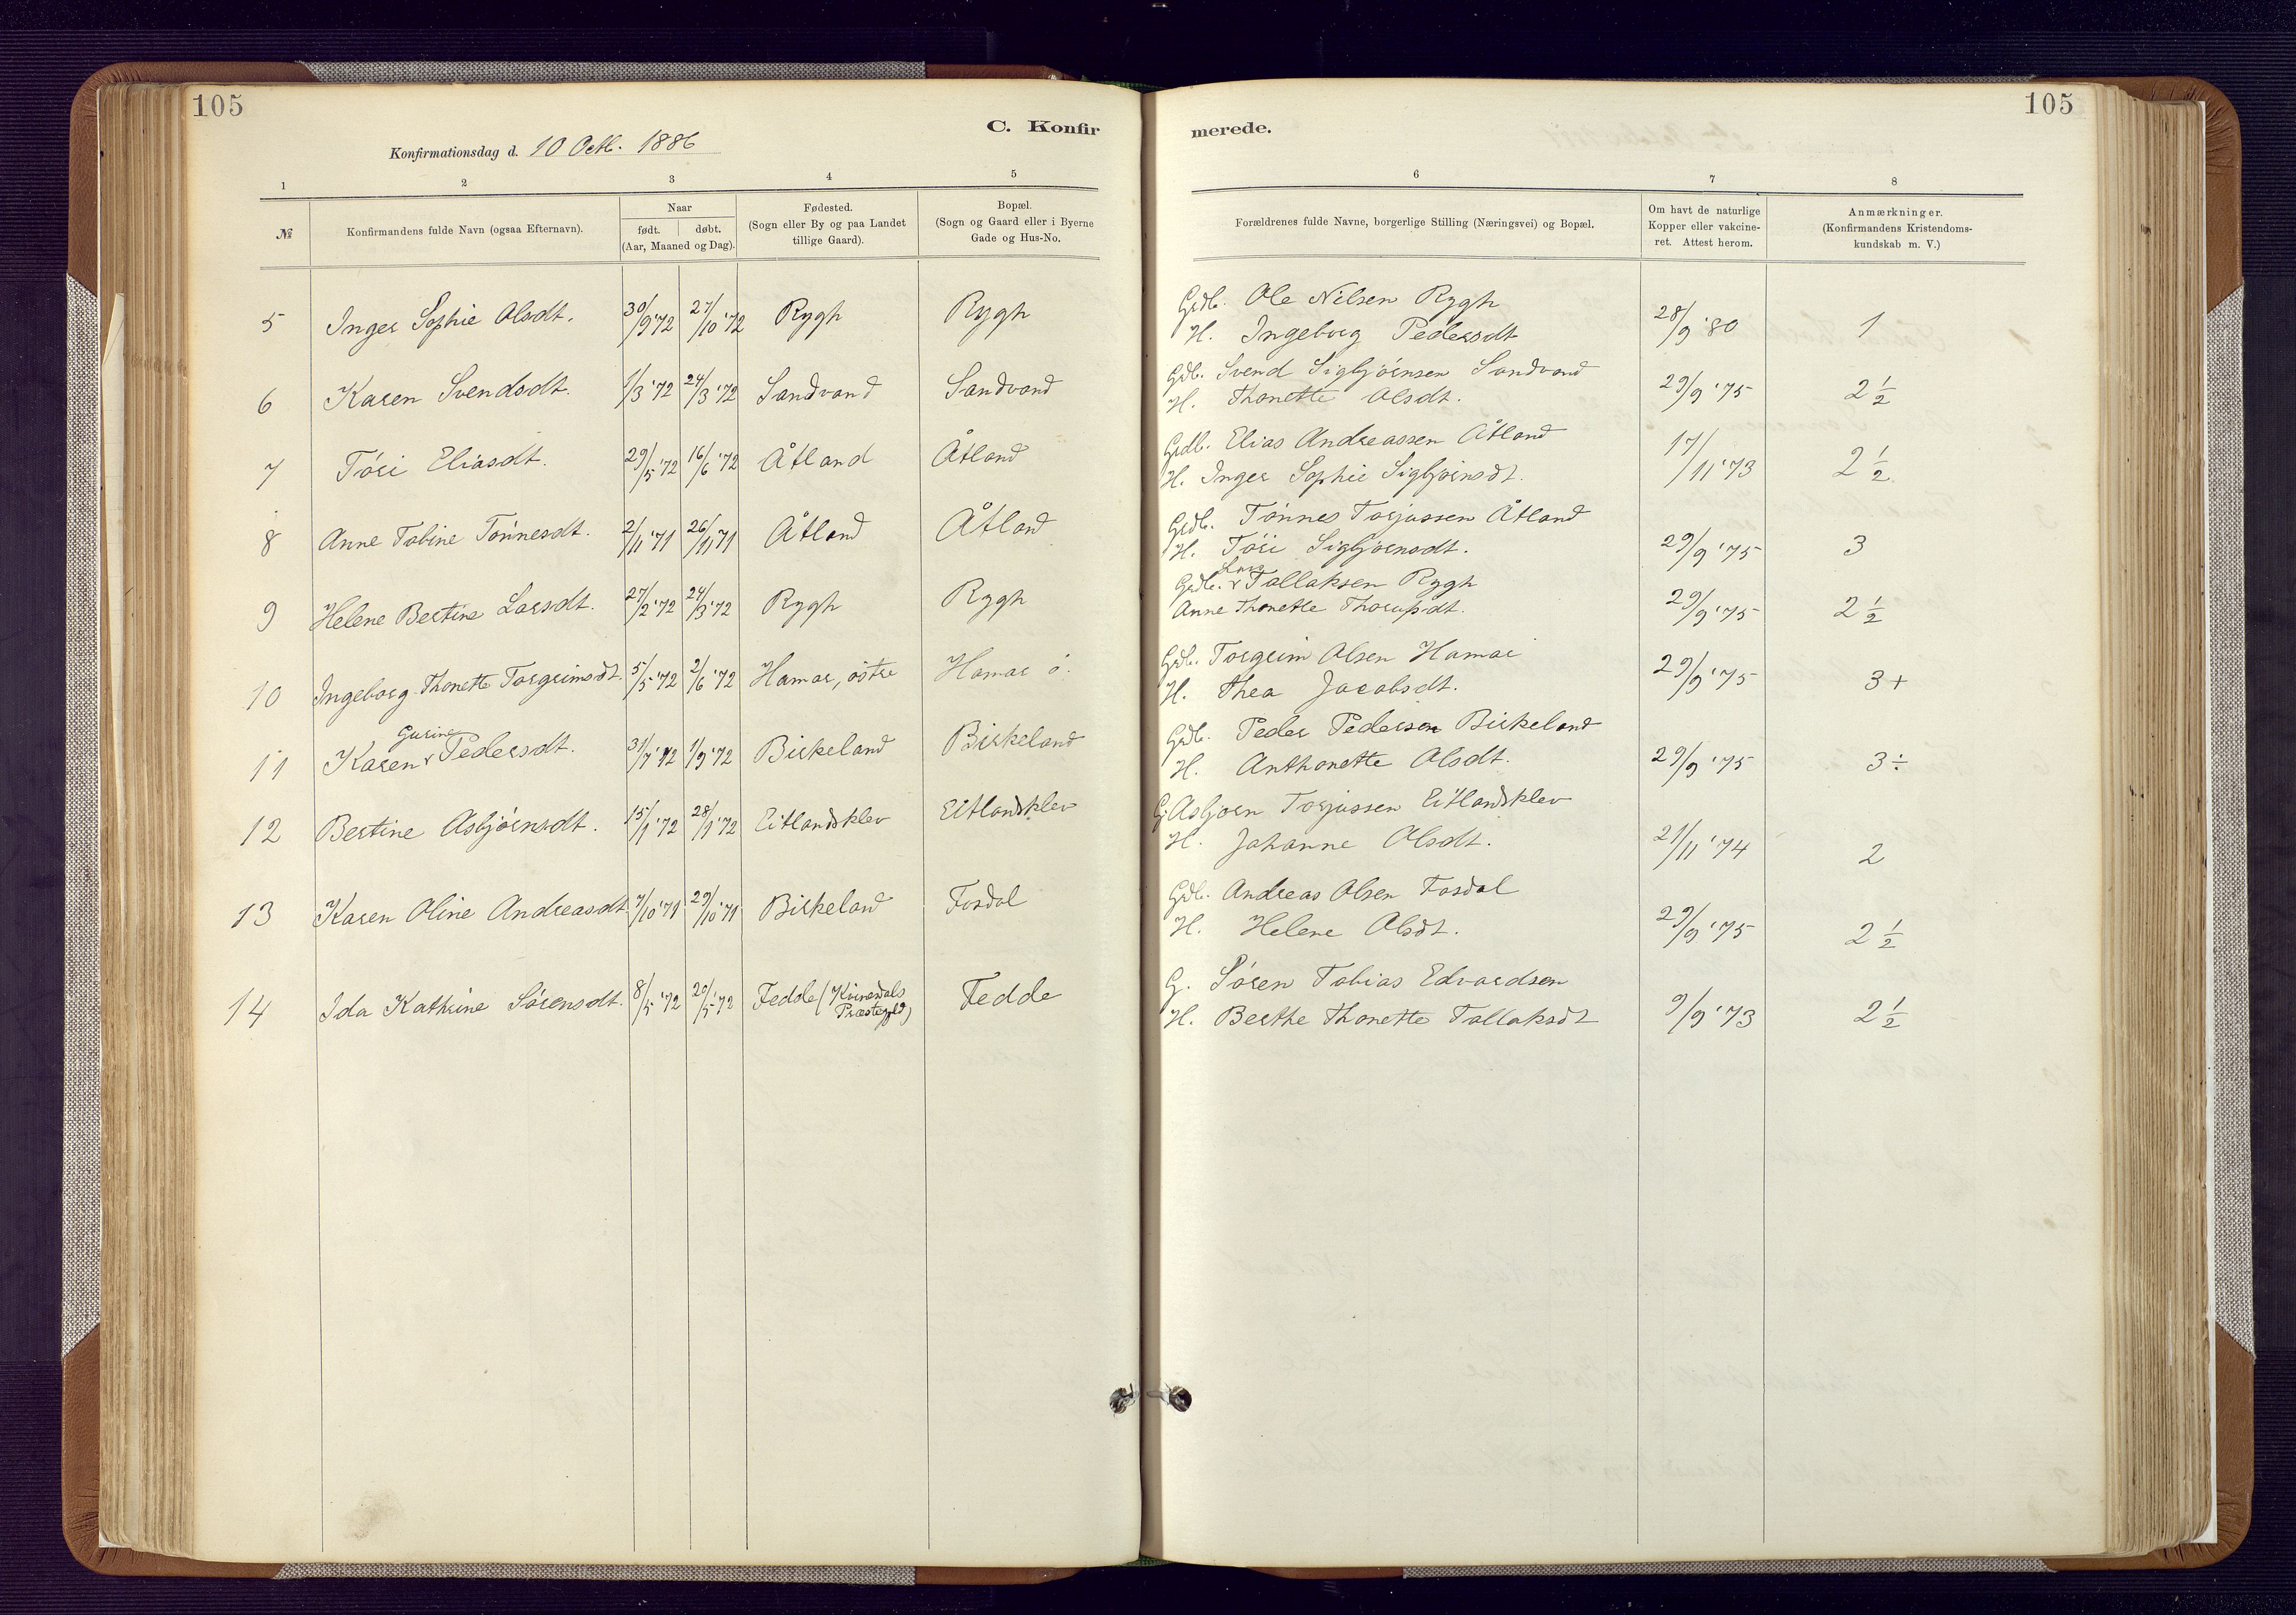 105
105
C. Konfirmerede.
Konfirmationsdag d. 10 Octb. 1886
1 2 3 4 5 6 7 8
№
Konfirmandens fulde Navn (ogsaa Efternavn).
Naar
født. døbt.
(Aar, Maaned og Dag).
Fødested.
(Sogn eller By og paa Landet
tillige Gaard).
Bopæl.
(Sogn og Gaard eller i Byerne
Gade og Hus-No.
Forældrenes fulde Navne, borgerlige Stilling (Næringsvei) og Bopæl.
Om havt de naturlige
Kopper eller vakcine-
ret. Attest herom.
Anmærkninger.
(Konfirmandens Kristendoms-
kundskab m. V.)
5 Inger Sophie Olsdt. 30/9 '72 27/10 '72 Rygh Rygh
Grdb. Ole Nilsen Rygh
H. Ingeborg Pedersdt 28/9 '80 1
6 Karen Svendsdt. 1/3 '72 24/3 '72 Sandvand Sandvand
Gdb. Svend Sigbjörnsen Sandvand
H. Thonette Olsdt. 29/9 '75 2 1/2
7 Töri Eliasdt. 29/5 '72 16/6 '72 Åtland Åtland
Grdb. Elias Andreassen Åtland
H. Inger Sophie Sigbjörnsdt. 17/11 '73 2 1/2
8 Anne Tobine Tönnesdt. 2/11 '71 26/11 '71 Åtland Åtland
Grdb. Tönnes Torjussen Åtland
H. Töri Sigbjörnsdt. 29/9 '75 3
9 Helene Bertine Larsdt. 27/2 '72 24/3 '72 Rygh Rygh
Grdb. Lars Tallaksen Rygh
Anne Thonette Thorupsdt. 29/9 '75 2 1/2
10 Ingeborg Thonette Torgrimsdt. 5/5 '72 2/6 '72 Hamar, östre Hamar ö.
Grdb. Torgrim Olsen Hamar
H. Thea Jacobsdt. 29/9 '75 3+
11 Karen Gurine Pedersdt. 31/7 '72 1/9 '72 Birkeland Birkeland
Grdb. Peder Pedersen Birkeland
H. Anthonette Olsdt. 29/9 '75 3÷
12 Bertine Asbjörnsdt. 15/1 '72 28/1 '72 Eitlandsklev Eitlandsklev
G. Asbjörn Torjussen Eitlandsklev
H. Johanne Olsdt. 21/11 '74 2
13 Karen Oline Andreasdt 7/10 '71 29/10 '71 Birkeland Fosdal
Grdb. Andreas Olsen Fosdal
H. Helene Olsdt. 29/9 '75 2 1/2
14 Ida Kathrine Sörensdt. 8/5 '72 20/5 '72 Fedde (Kvinesdals Præstegjeld) Fedde
G. Sören Tobias Edvardsen
H. Berthe Thonette Tallaksdt 9/9 '73 2 1/2